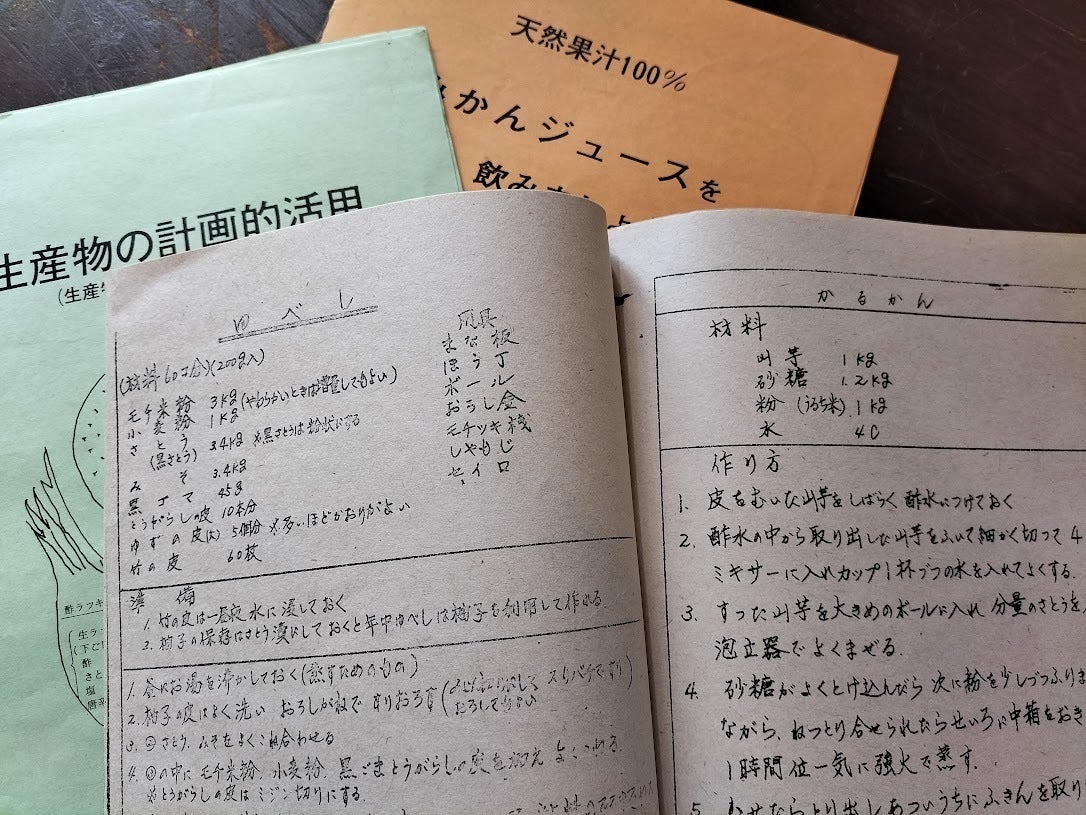 天然果汁100%
かんジュースを
飲み
生産物の計画的活用
(生産物
酢ラッキ
生ラ
(下ご
酢
さと
塩
唐辛
ゆべし
(材料60コ分)(200g入)
モチ米粉 3kg(やわらかいときは増量してもよい)
小麦粉 1kg
さとう 3.4kg ※黒さとうは粉状にする
(黒さとう)
みそ 3.4kg
黒ゴマ 45g
とうがらしの皮 10本分
ゆずの皮(大) 5個分 ※多いほどかおりがよい
竹の皮 60枚
用具
まな板
ほう丁
ボール
おろし金
モチツキ機
しゃもじ
セイロ
準備
1. 竹の皮は一昼夜水に浸しておく
2. 柚子の保存はさとう漬にしておくと年中ゆべしは柚子を利用して作れる
1. 釜にお湯を沸かしておく(蒸すためのもの)
2. 柚子の皮はよく洗い おろしがねですりおろす
3. ②さとう、みそをよくこね合わせる
4. ③の中にモチ米粉、小麦粉、黒ごまとうがらしの皮を加えよくこねる
※とうがらしの皮はミジン切りにする。
かるかん
材料
山芋 1kg
砂糖 1.2kg
粉(うるち米) 1kg
水 4C
作り方
1. 皮をむいた山芋をしばらく酢水につけておく
2. 酢水の中から取り出した山芋をふいて細かく切って4
ミキサーに入れカップ1杯づつの水を入れてよくする。
3. すった山芋を大きめのボールに入れ 分量のさとうを
泡立器でよくまぜる。
4. 砂糖がよくとけ込んだら 次に粉を少しづつふりま
ながら、ねっとり合せられたらせいろに中箱をおき
1時間位一気に強火で蒸す。
5. むせたらとり出しあついうちにふきんを取り